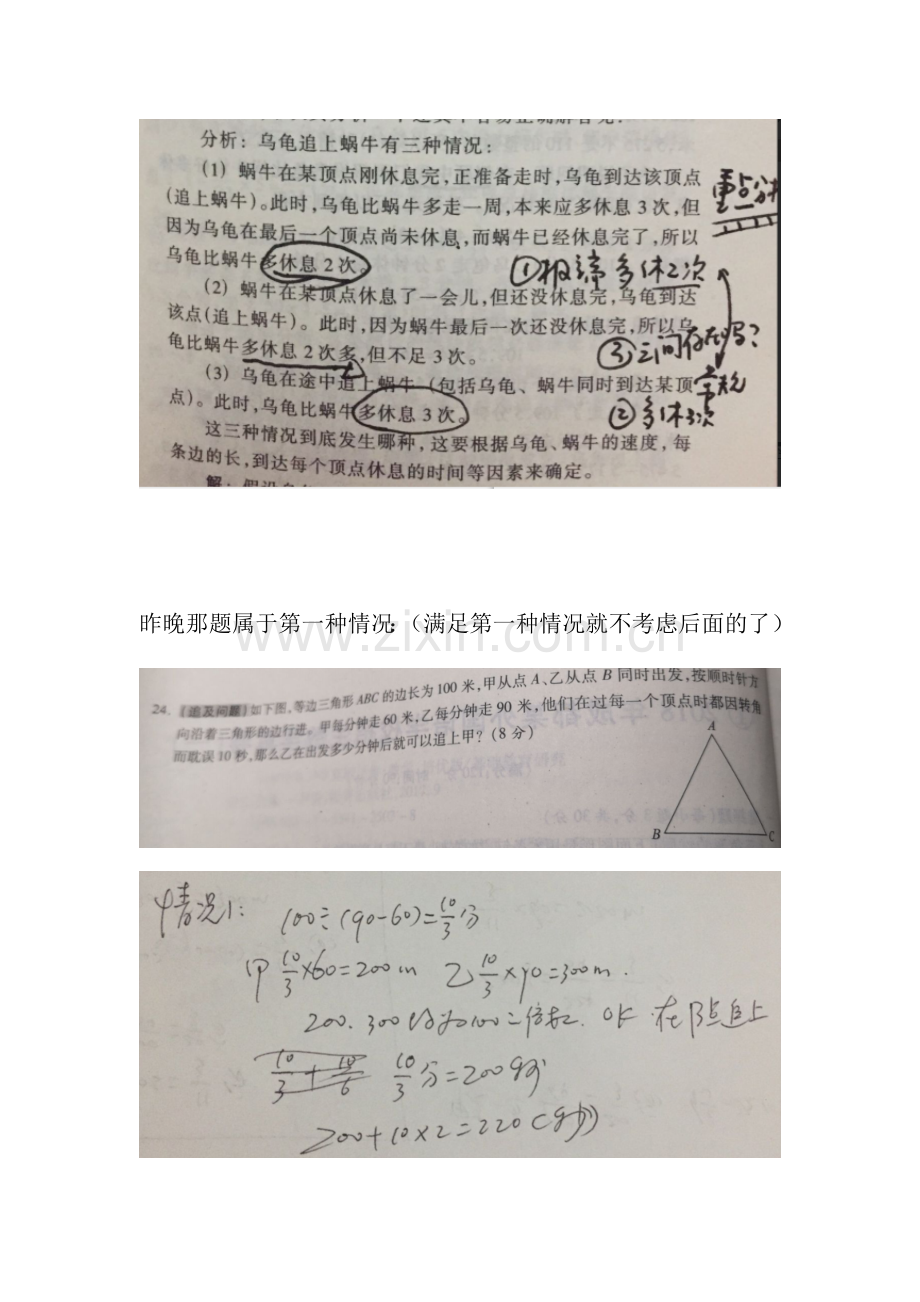 分析：乌龟追上蜗牛有三种情况：
(1) 蜗牛在某顶点刚休息完，正准备走时，乌龟到达该顶点
(追上蜗牛)。此时，乌龟比蜗牛多走一周，本来应多休息 3 次，但
因为乌龟在最后一个顶点尚未休息，而蜗牛已经休息完了，所以
乌龟比蜗牛多休息 2 次。
(2) 蜗牛在某顶点休息了一会儿，但还没休息完，乌龟到达
该点(追上蜗牛)。此时，因为蜗牛最后一次还没休息完，所以乌
龟比蜗牛多休息 2 次多，但不足 3 次。
(3) 乌龟在途中追上蜗牛 (包括乌龟、蜗牛同时到达某顶
点)。此时，乌龟比蜗牛多休息 3 次。
这三种情况到底发生哪种，这要根据乌龟、蜗牛的速度，每
条边的长，到达每个顶点休息的时间等因素来确定。
重点分
① 多休2次
③
② 多休3次
昨晚那题属于第一种情况：（满足第一种情况就不考虑后面的了）
www.zixin.com.cn
24. 【追及问题】如下图，等边三角形 ABC 的边长为 100 米，甲从点 A、乙从点 B 同时出发，按顺时针方
向沿着三角形的边行进。甲每分钟走 60 米，乙每分钟走 90 米，他们在过每一个顶点时都因转角
而耽误 10 秒，那么乙在出发多少分钟后就可以追上甲？(8 分)
A
B
C
情况1： 100÷(90-60)=10/3分
甲 10/3×60=200m 乙 10/3×90=300m.
200. 300 100 倍数. OK 在 点追上
10/3分=200秒
200+10×2=220(秒)